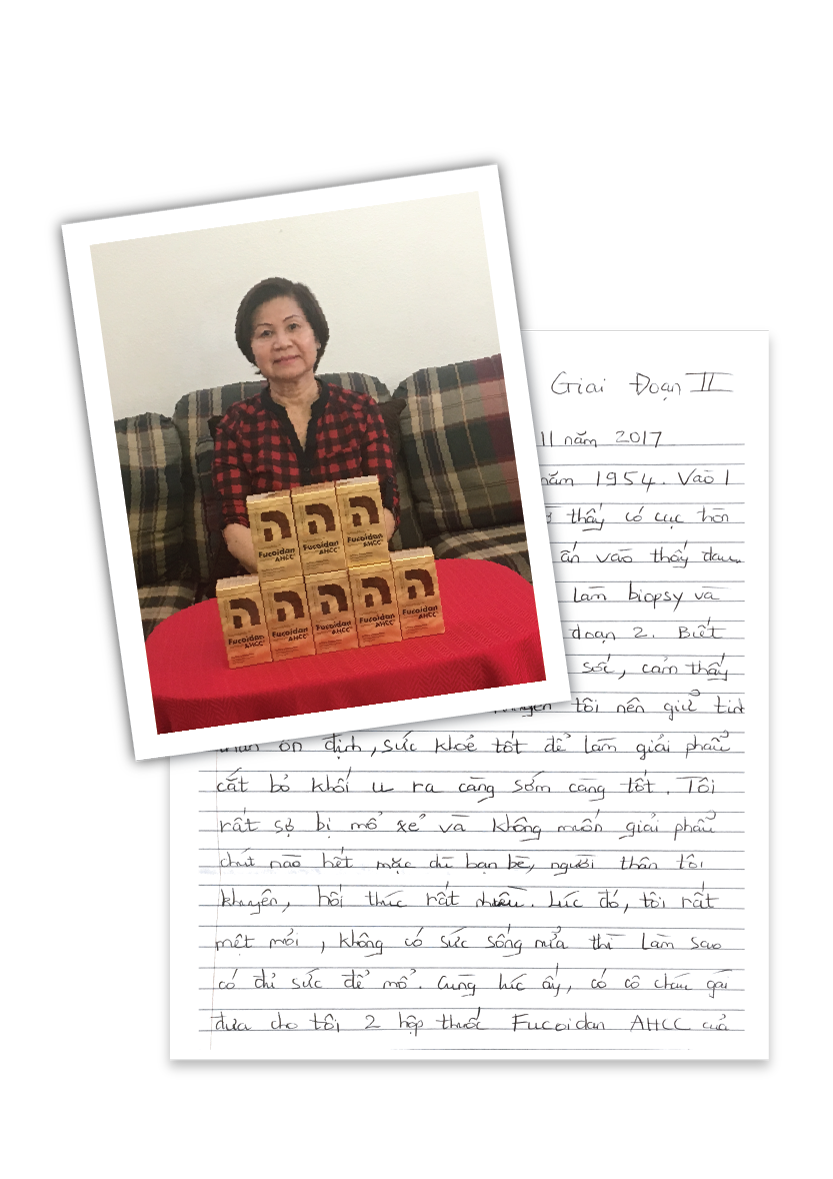 Giai Đoạn II
11 năm 2017
năm 1954. Vào 1
thấy có cục hòn
ấn vào thấy đau
làm biopsy và
đoạn 2. Biết
sốc, cảm thấy
tôi nên giữ tinh
thần ổn định, sức khoẻ tốt để làm giải phẩu
cắt bỏ khối u ra càng sớm càng tốt. Tôi
rất sợ bị mổ xẻ và không muốn giải phẩu
chút nào hết mặc dù bạn bè, người thân tôi
khuyên, hối thúc rất nhiều. Lúc đó, tôi rất
mệt mỏi, không có sức sống nửa thì làm sao
có đủ sức để mổ. Cùng lúc ấy, có cô cháu gái
đưa cho tôi 2 hộp thuốc Fucoidan AHCC của
Fucoidan
AHCC
Fucoidan
AHCC
Fucoidan
AHCC
Fucoidan
AHCC
Fucoidan
AHCC
Fucoidan
AHCC
Fucoidan
AHCC
Fucoidan
AHCC